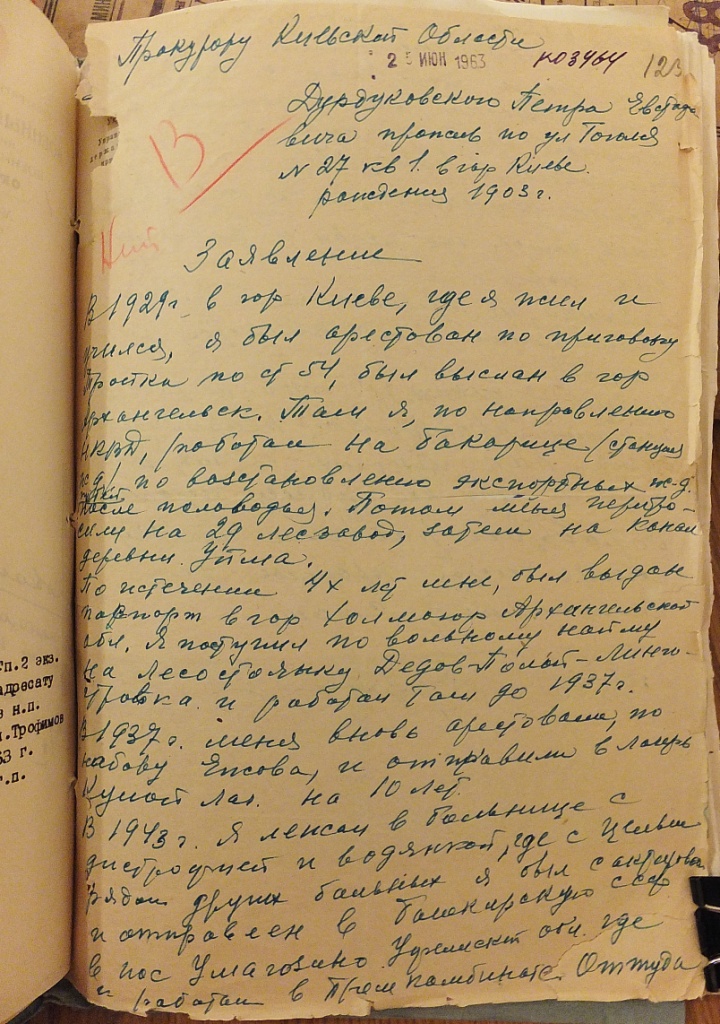 Прокурору Киевской Области
25 ИЮН 1963
123
Дурдуковского Петра Евста
вича прожив по ул Гоголя
N 27 кв 1. в гор Киеве.
рождения 1903 г.
В
Заявление
В 1929 г. в гор Киеве, где я жил и
учился, я был арестован по приговору
Тройки по ст 54, был выслан в гор
Архангельск. Там я, по направлению
НКВД, работал на Бакарице (станция
ж д) по возстановлению экспортных ж-д.
путей после половодья. Потом меня перебро-
сили на 29 лесзавод, затем на канал
деревни Уйма.
По истечении 4х лет мне, был выдан
паспорт в гор Холмогор Архангельской
обл. Я поступил по вольному найму
на лесостоянку Дедов-Полой-
и работал там до 1937 г.
В 1937 г. меня вновь арестовали, по
набору Ежова, и отправили в лагерь
Кулой лаг. на 10 лет.
В 1943 г. я лежал в больнице с
дистрофией и водянкой, где с целым
рядом других больных я был сактирован
и отправлен в Башкирскую ССР
в пос Умагозино обл. где
и работал в Пром комбинате. Оттуда
Тп.2 экз.
адресату
в н.п.
.Трофимов
63 г.
г.п.